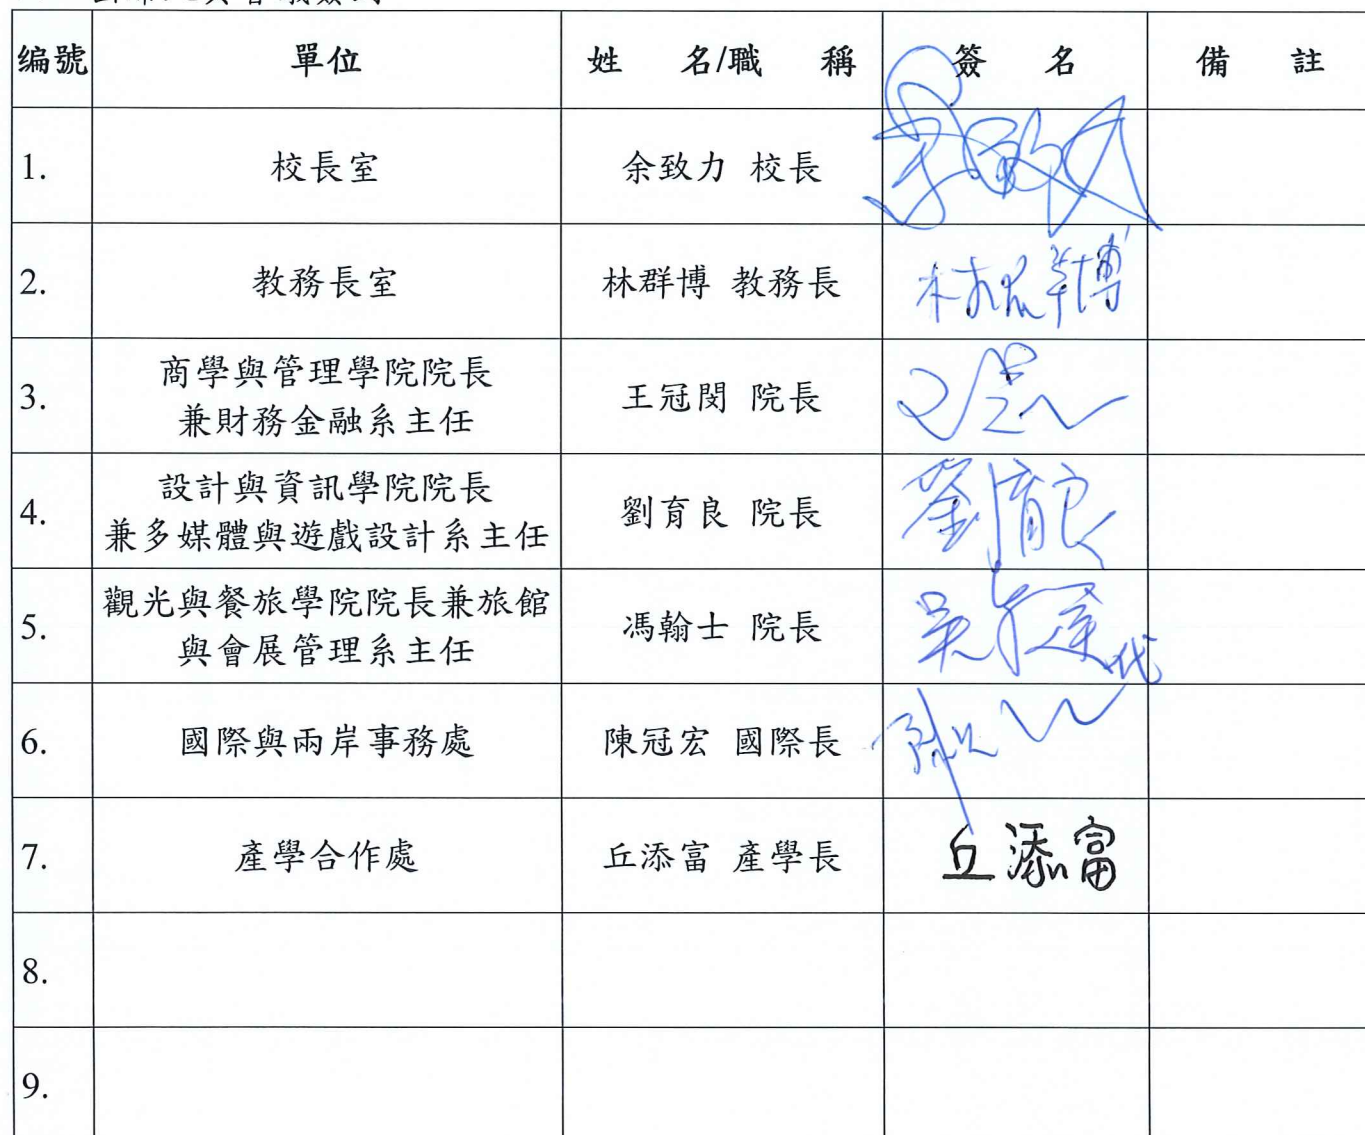 编號 單位 姓 名/職 稱 簽 名 備 註
1. 校長室 余致力 校長 余致力
2. 教務長室 林群博 教務長 林群博
3. 商學與管理學院院長
兼財務金融系主任 王冠閔 院長
4. 設計與資訊學院院長
兼多媒體與遊戲設計系主任 劉育良 院長 劉育良
5. 觀光與餐旅學院院長兼旅館
與會展管理系主任 馮翰士 院長 代
6. 國際與兩岸事務處 陳冠宏 國際長
7. 產學合作處 丘添富 產學長 丘添富
8.
9.